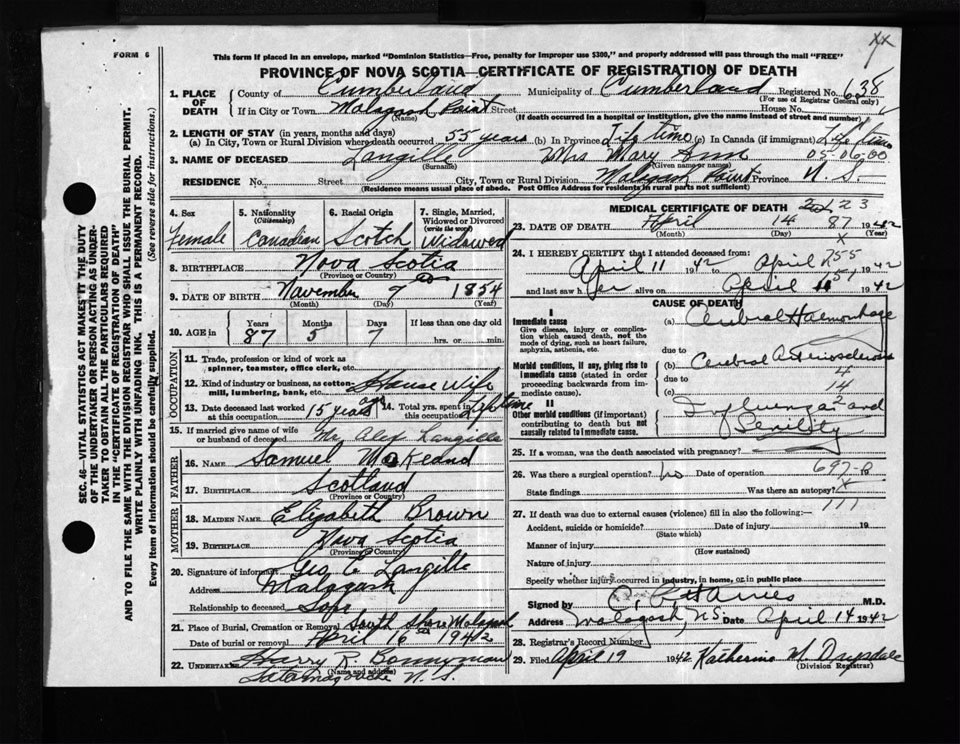 FORM 6
This form if placed in an envelope, marked "Dominion Statistics—Free, penalty for improper use $300," and properly addressed will pass through the mail "FREE"
PROVINCE OF NOVA SCOTIA—CERTIFICATE OF REGISTRATION OF DEATH
1. PLACE OF DEATH
County of Cumberland Municipality of Cumberland Registered No. 638
(For use of Registrar General only)
If in City or Town Malagash Point Street House No.
(Name) (If death occurred in a hospital or institution, give the name instead of street and number)
2. LENGTH OF STAY (in years, months and days)
(a) In City, Town or Rural Division where death occurred 55 years (b) In Province Life time (c) In Canada (if immigrant) Life time
3. NAME OF DECEASED Langille Mrs Mary Ann 05-06,00
(Surname) (Given name or names)
RESIDENCE No. Street City, Town or Rural Division Malagash Point Province N. S.
(Residence means usual place of abode. Post Office Address for residents in rural parts not sufficient)
4. Sex Female
5. Nationality (Citizenship) Canadian
6. Racial Origin Scotch
7. Single, Married, Widowed or Divorced (write the word) Widowed
8. BIRTHPLACE Nova Scotia
(Province or Country)
9. DATE OF BIRTH November 7 1854
(Month) (Day) (Year)
10. AGE in Years 87 Months 5 Days 7 If less than one day old hrs. or min.
OCCUPATION
11. Trade, profession or kind of work as spinner, teamster, office clerk, etc.
12. Kind of industry or business, as cotton-mill, lumbering, bank, etc. House Wife
13. Date deceased last worked at this occupation 15 years ago
14. Total yrs. spent in this occupation Lifetime
15. If married give name of wife or husband of deceased Mr Alex Langille
FATHER
16. NAME Samuel McKeand
17. BIRTHPLACE Scotland
(Province or Country)
MOTHER
18. MAIDEN NAME Elizabeth Brown
19. BIRTHPLACE Nova Scotia
(Province or Country)
20. Signature of informant Geo C Langille
Address Malagash
Relationship to deceased Son
21. Place of Burial, Cremation or Removal South Shore Malagash
Date of burial or removal April 16 1942
22. UNDERTAKER Harry R. Bonnyman
(Name and address)
Tatamagouche N. S.
MEDICAL CERTIFICATE OF DEATH 23
23. DATE OF DEATH April 14 87 1942
(Month) (Day) (Year)
24. I HEREBY CERTIFY that I attended deceased from:
April 11 42 to April 1942
and last saw her alive on April 11 1942
CAUSE OF DEATH
I
Immediate cause
Give disease, injury or complication which caused death, not the mode of dying, such as heart failure, asphyxia, asthenia, etc.
(a) Cerebral Haemorrhage
due to
Morbid conditions, if any, giving rise to immediate cause (stated in order proceeding backwards from immediate cause).
(b) Cerebral Arteriosclerosis
due to 4
(c) 14
II
Other morbid conditions (if important) contributing to death but not causally related to immediate cause.
Influenza and Senility
25. If a woman, was the death associated with pregnancy?
26. Was there a surgical operation? no Date of operation
State findings Was there an autopsy? x
27. If death was due to external causes (violence) fill in also the following:—
Accident, suicide or homicide? Date of injury 19
(State which)
Manner of injury
(How sustained)
Nature of injury
Specify whether injury occurred in industry, in home, or in public place
Signed by M.D.
Address Malagash, N.S. Date April 14 1942
28. Registrar's Record Number
29. Filed April 19 1942 Katherine M. Drysdale
(Division Registrar)
SEC. 46—VITAL STATISTICS ACT MAKES IT THE DUTY
OF THE UNDERTAKER OR PERSON ACTING AS UNDERTAKER TO OBTAIN ALL THE PARTICULARS REQUIRED
IN THE "CERTIFICATE OF REGISTRATION OF DEATH"
AND TO FILE THE SAME WITH THE DIVISION REGISTRAR WHO SHALL ISSUE THE BURIAL PERMIT.
WRITE PLAINLY WITH UNFADING INK. THIS IS A PERMANENT RECORD.
Every item of information should be carefully supplied. (See reverse side for instructions.)